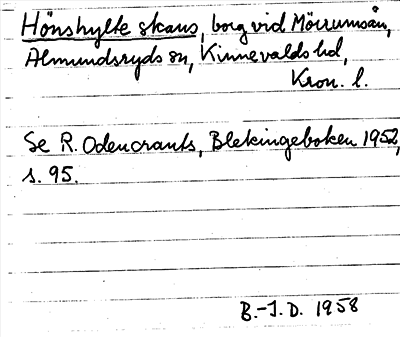 Hönshylte skans, borg vid Mörrumsån,
Almundsryds sn, Kinnevalds hd,
Kron. l.
Se R. Odencrants, Blekingeboken 1952,
s. 95.
B.-J. D. 1958